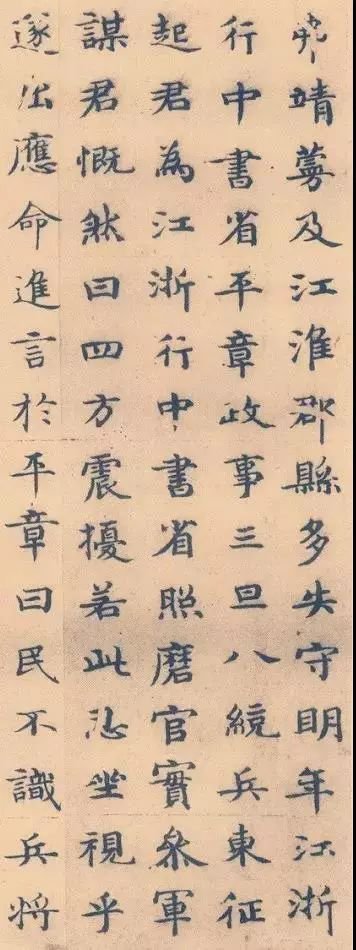 靖蔓及江淮郡縣多失守明年江浙
行中書省平章政事三旦八統兵東征
起君為江浙行中書省照磨官實叅軍
謀君慨然曰四方震擾若此忍坐視乎
遂出應命進言於平章曰民不識兵將